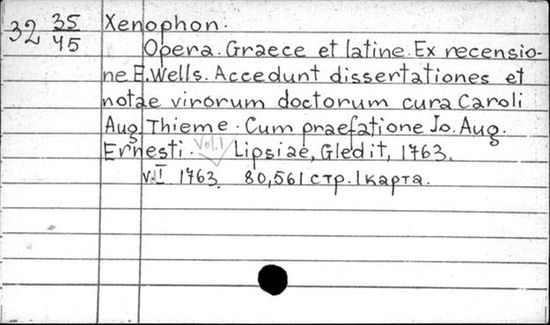 32 35/45 Xenophon.
Opera. Graece et latine. Ex recensio-
ne E. Wells. Accedunt dissertationes et
notae virorum doctorum cura Caroli
Aug. Thieme. Cum praefatione Jo. Aug.
Ernesti. Vol. 1 Lipsiae, Gledit, 1763.
v. I 1763. 80,561 стр. 1 карта.